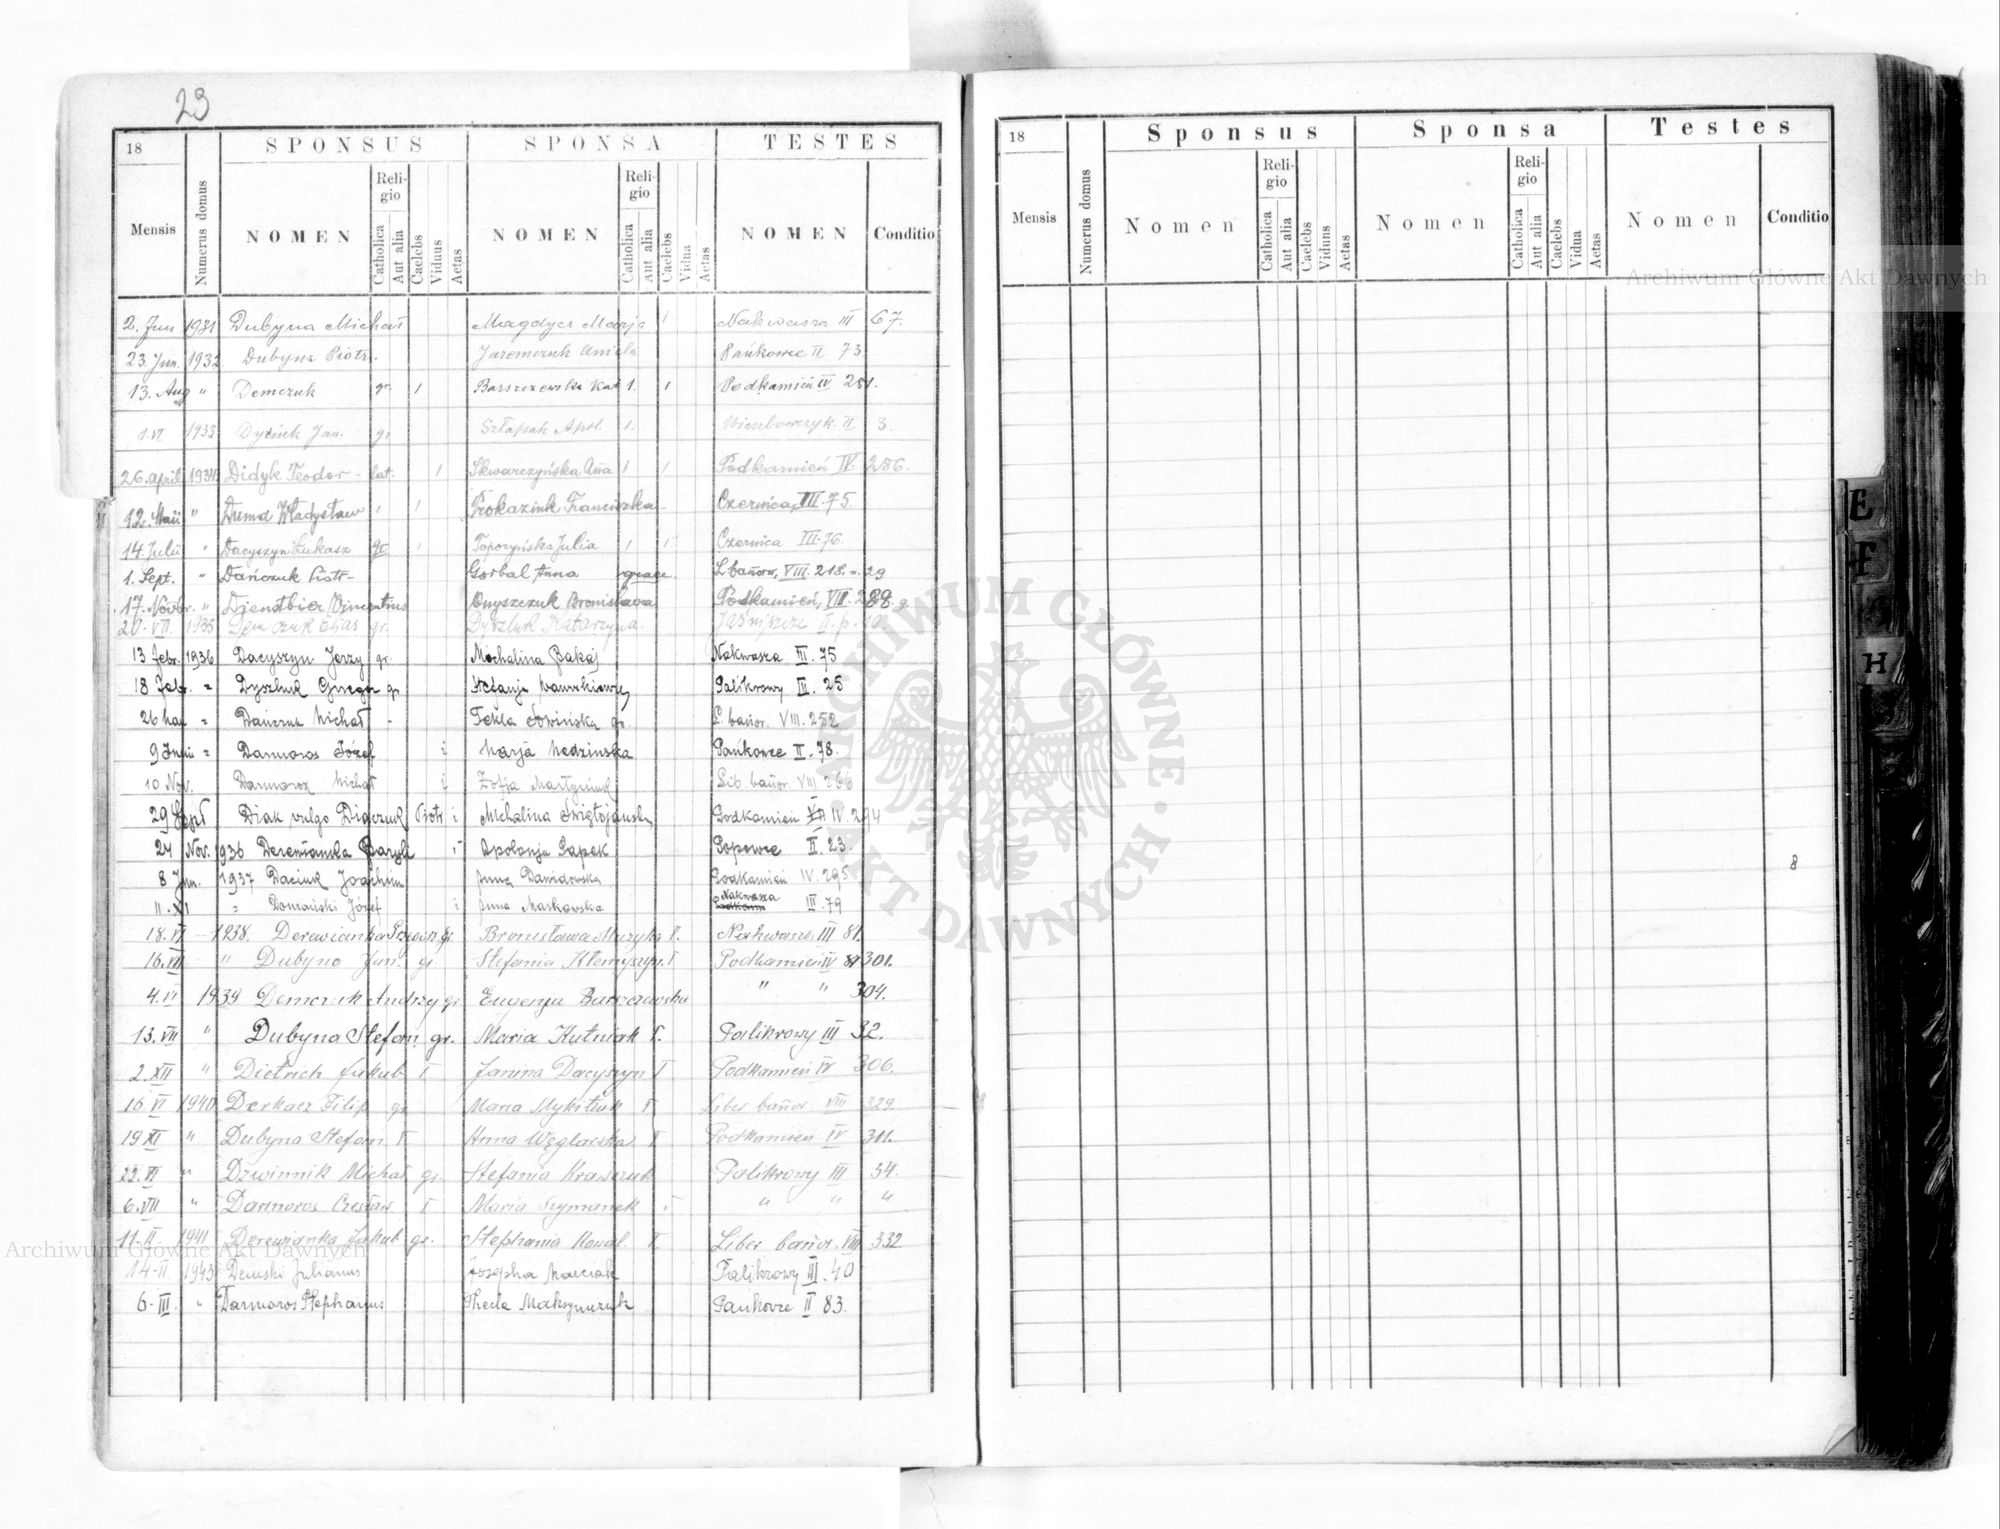 23
18 SPONSUS SPONSA TESTES
Mensis Numerus domus NOMEN Religio Catholica Aut alia Caelebs Viduus Aetas NOMEN Religio Catholica Aut alia Caelebs Vidua Aetas NOMEN Conditio
2. Jun 1931 Dubyna Michał Magdycz Marja 1 Nakwasza III 67.
23. Jun. 1932 Dubyna Piotr Jaremczuk Aniela Pańkowce II 73
13. Aug " Demczuk gr. 1 Barszczewska Kat 1. 1 Podkamień IV 281.
1.VI 1933 Jan. gr. Szłapak Apol. 1. Wierzbowczyk II 3.
26. april 1934 Didyk Teodor - lat. 1 Skwarczyńska Anna 1 1 Podkamień IV. 286.
12. Maii " Duma Władysław 1 1 Prokaziuk Franciszka Czernica, III. 75.
14. Julii " Dacyszyn Łukasz gr 1 Toporzyńska Julia 1 1 Czernica III. 76.
1. Sept. " Dańczuk Piotr - Gorbal Anna graec. L. bańor, VIII. 218. n. 29
17. Novbr. " Dienstbier Vincentius Onyszczuk Bronisława Podkamień, VII. 288. g.
20. VII. 1935 Demczuk Elias gr. Dyszluk Katarzyna. II. p.
13 febr. 1936 Dacyszyn Jerzy gr. Michalina Bakaj Nakwasza III. 75
18 febr. " Dyszluk Grzegor gr Stefanja Palikrowy III. 25
26 Mai " Dańczuk Michał - Tekla Sowińska gr. L. bańor. VIII. 252
9 Junii " Darmoros Józef i Marja Medzinska Pańkowce II. 78.
10 Nov. Darmorosz Michał i Zofja Martyniuk Lib bańor VIII 266
29 Sept Diak vulgo Diaczuk Piotr i Michalina Świętojańska Podkamień IV. 294
24 Nov. 1936 Derewianka Bazyli i Apolonja Gapek Popowce II. 23.
8 Jun. 1937 Daciuk Joachim Anna Dawidowska Podkamień IV. 295
11. XI " Domański Józef i Anna Markowska Nakwasza III. 79
18. VI - 1938. Derewianka Grzegorz gr. Bronisława Muzyka ł. Nakwasza III 81.
16. VII " Dubyna Jan. gr. Stefania Klemyszyn. ł Podkamień IV 301.
4. VI 1939 Demczuk Andrzej gr. Eugenja Barszczewska " " 304.
13. VII " Dubyna Stefan gr. Maria Kutniak ł. Palikrowy III 32.
2. XII " Dietrich Jakub ł Janina Dacyszyn ł Podkamień IV 306.
16 VI 1940 Derkacz Filip gr Maria Mykitiuk ł Liber bańor VIII 329.
19 XI " Dubyna Stefan ł. Anna Węglarska ł Podkamień IV 311.
22. VI " Dźwinnik Michał gr. Stefania Krawczuk Palikrowy III 34.
6. VII " Darmoros Czesław ł Maria Szymanek ł " " "
11-II- 1941 Derewianka Jakub gr. Stephania Kowal ł. Liber bańor. VIII 332
14-II. 1943 Julianus Josepha Marciak Palikrowy III. 40
6- III. " Darmoros Stephanus Thecla Maksymczuk Pańkowce II 83.
18 Sponsus Sponsa Testes
Mensis Numerus domus Nomen Religio Catholica Aut alia Caelebs Viduns Aetas Nomen Religio Catholica Aut alia Caelebs Vidua Aetas Nomen Conditio
8
E
F
H
Archiwum Główne Akt Dawnych
Archiwum Główne Akt Dawnych
ARCHIWUM GŁÓWNE AKT DAWNYCH